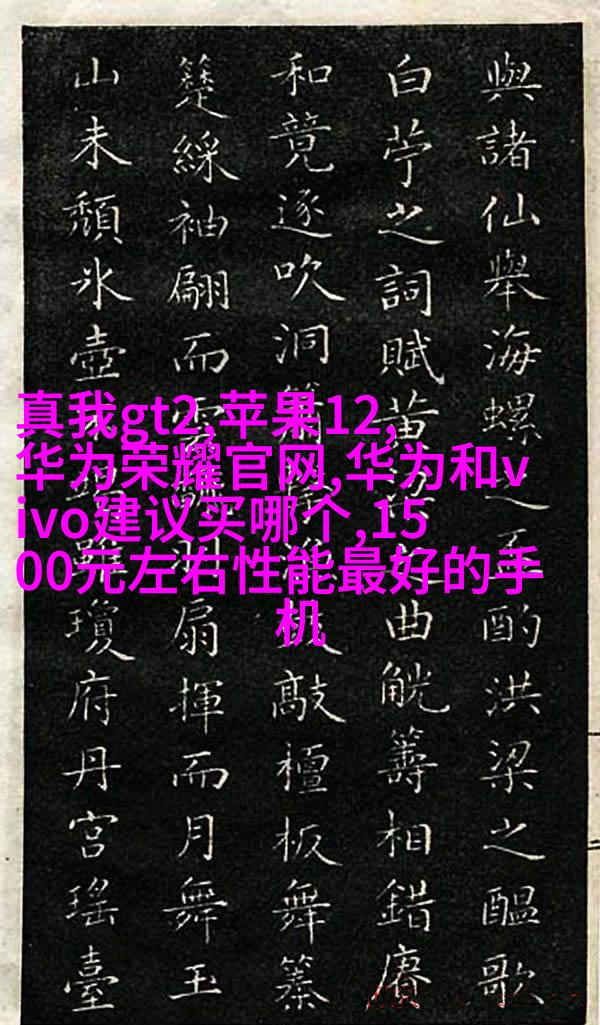 與諸仙舉海螺之酌洪梁之醖歌
白苧之詞賦黃之曲觥籌相錯賡
和竟逐吹洞敲檀板舞
綵袖翩而雲羽扇揮而月舞玉
山未頹冰壺雖瓊府丹宮瑤臺
真我gt2,苹果12,
华为荣耀官网,华为和v
ivo建议买哪个,15
00元左右性能最好的手
机